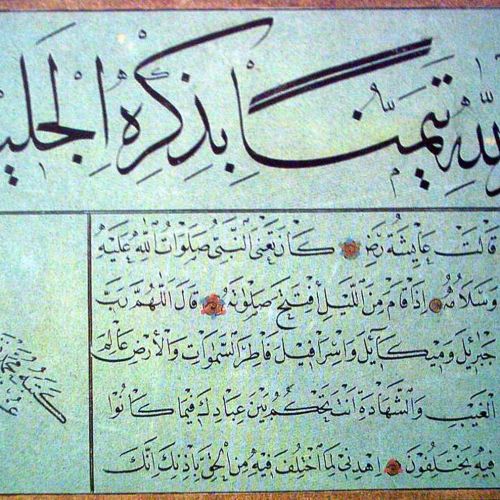 الله تيمنا بذكره الجليـ
قالت عايشة رض كان يعني النبي صلوات الله عليه
وسلامه إذا قام من الليل افتتح صلوته قال اللهم رب
جبرئيل وميكائيل واسرافيل فاطر السموات والأرض عالم
الغيب والشهادة أنت تحكم بين عبادك فيما كانوا
فيه يختلفون اهدني لما اختلف فيه من الحق بإذنك إنك